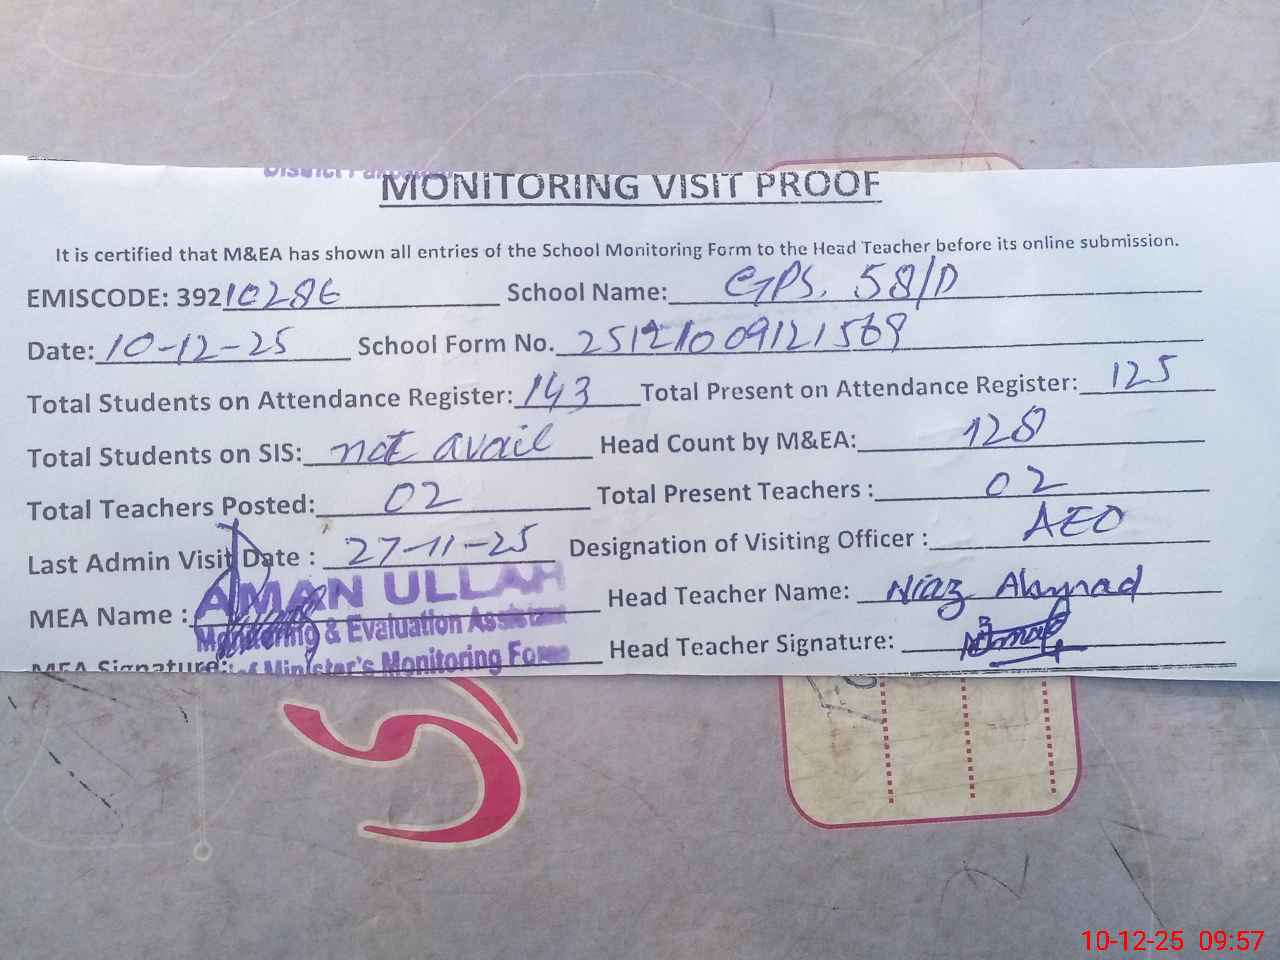 MONITORING VISIT PROOF
It is certified that M&EA has shown all entries of the School Monitoring Form to the Head Teacher before its online submission.
EMISCODE: 39210286 School Name: GPS. 58/D
Date: 10-12-25 School Form No. 25121009121569
Total Students on Attendance Register: 143 Total Present on Attendance Register: 125
Total Students on SIS: not avail Head Count by M&EA: 128
Total Teachers Posted: 02 Total Present Teachers : 02
Last Admin Visit Date : 27-11-25 Designation of Visiting Officer : AEO
MEA Name : AMAN ULLAH Head Teacher Name: Niaz Ahmad
Monitoring & Evaluation Assistant
MEA Signature: Minister's Monitoring Force Head Teacher Signature:
10-12-25 09:57